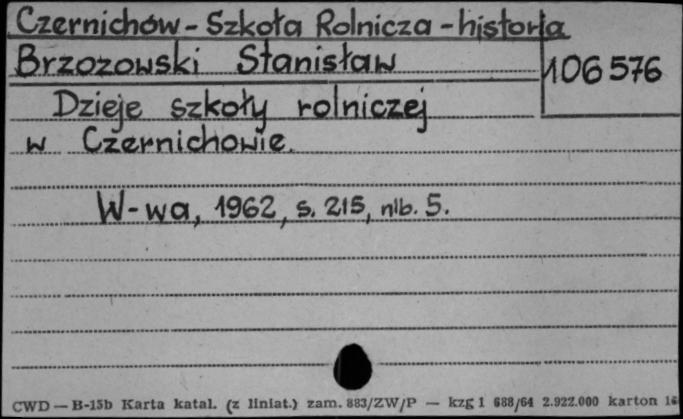 Czernichów - Szkoła Rolnicza - historja
Brzozowski Stanisław
106576
Dzieje szkoły rolniczej
w Czernichowie.
W-wa, 1962, s. 215, nlb. 5.
CWD — B-15b Karta katal. (z liniat.) zam. 883/ZW/P — kzg 1 688/64 2.922.000 karton